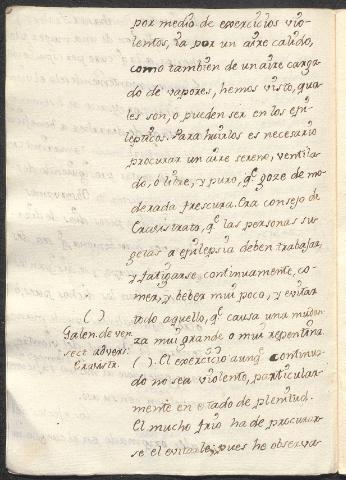 por medio de exercicios vio-
lentos, ia por un aire calido,
como tambien de un aire carga-
do de vapores, hemos visto, qua-
les son, o pueden ser en los epi-
lepticos. Para huirlos es necesario
procurar un aire sereno, ventila-
do, ò libre, y puro, q.e goze de mo-
derada frescura. Era consejo de
Erasistrato, q.e las personas su-
getas a epilepsia deben trabajar,
y fatigarse continuamente, co-
mer, y beber mui poco, y evitar
todo aquello, q.e causa una mudan-
za mui grande o mui repentina.
( ). El exercicio aunq.e continua-
do no sea violento, particular-
mente en estado de plenitud.
El mucho frio ha de procurar-
se el evitarle; pues he observa-
( )
Galen. de ven.
sect. adver.
Erasistr.